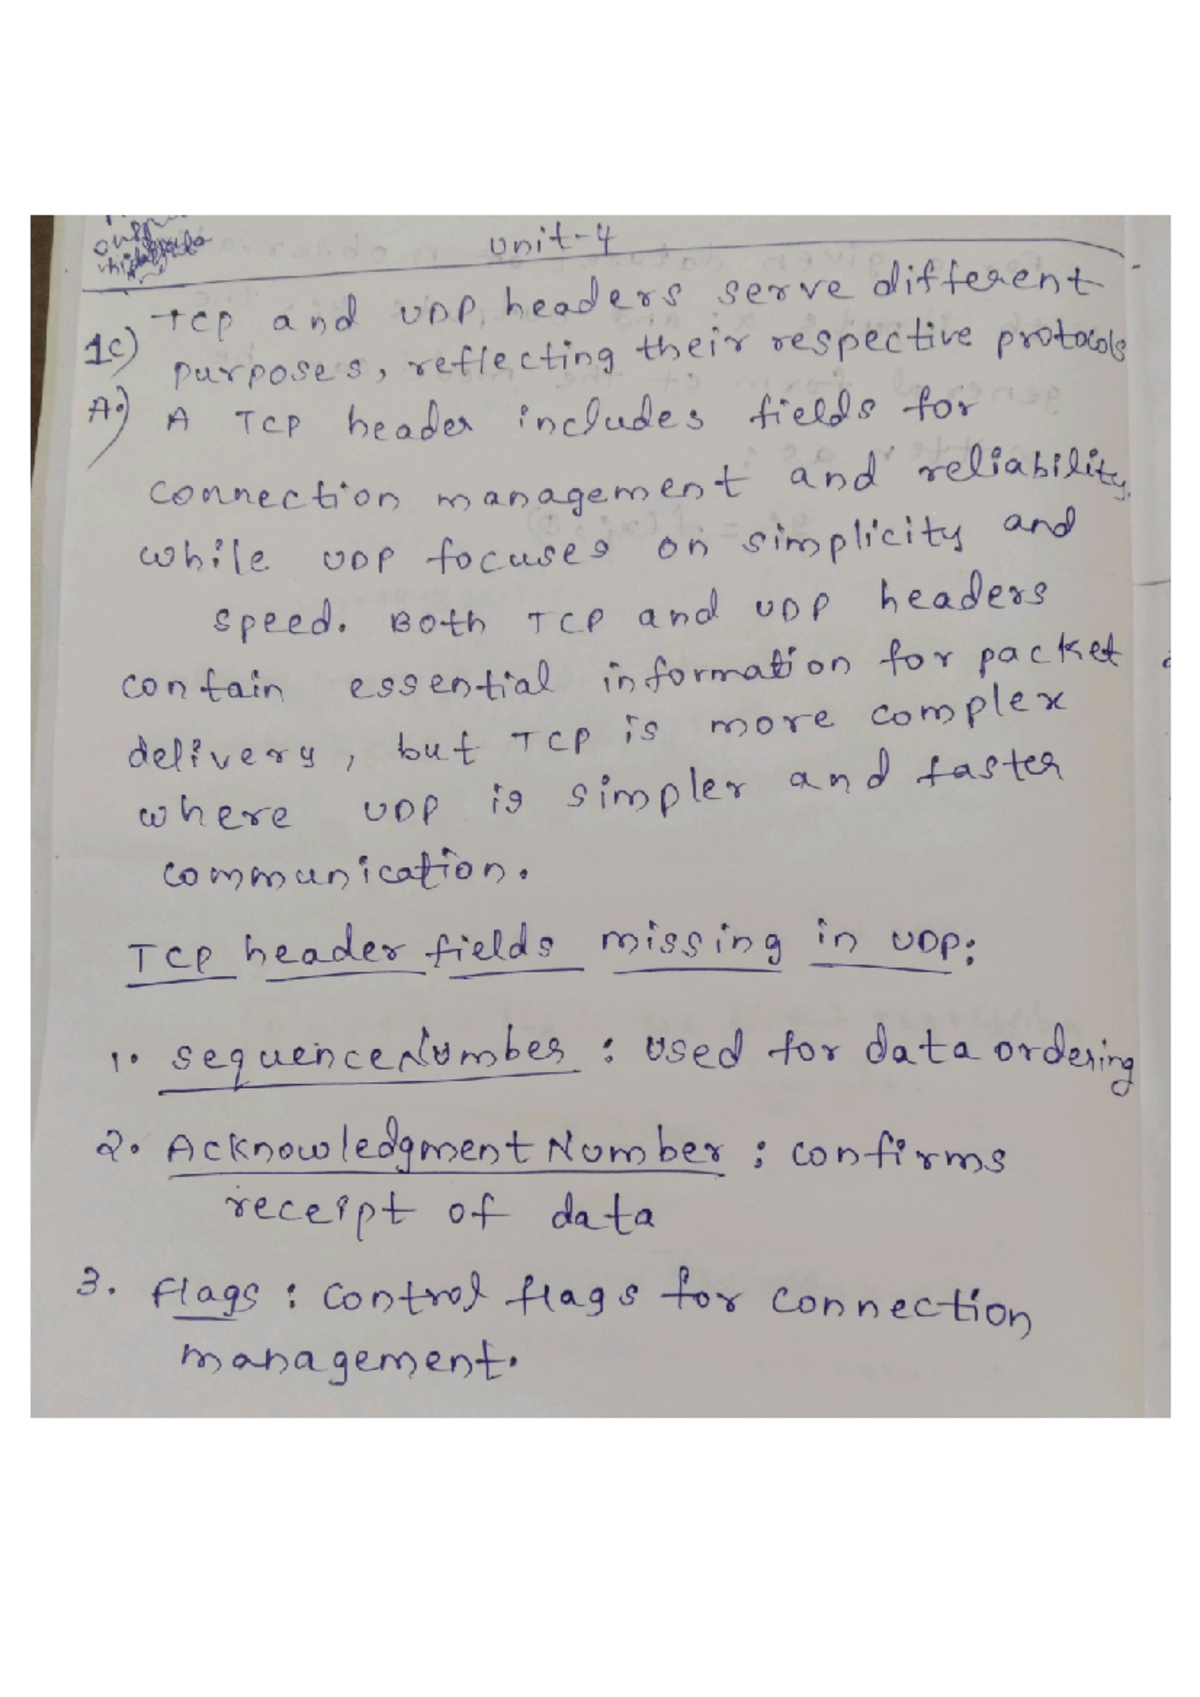 Unit-4
TCP and UDP headers serve different
1c) purposes, reflecting their respective protocols
A.) A TCP header includes fields for
connection management and reliability,
while UDP focuses on simplicity and
speed. Both TCP and UDP headers
contain essential information for packet
delivery, but TCP is more complex
where UDP is simpler and faster
communication.
TCP header fields missing in UDP:
1. Sequence Number : Used for data ordering
2. Acknowledgment Number : confirms
receipt of data
3. Flags : Control flags for connection
management.